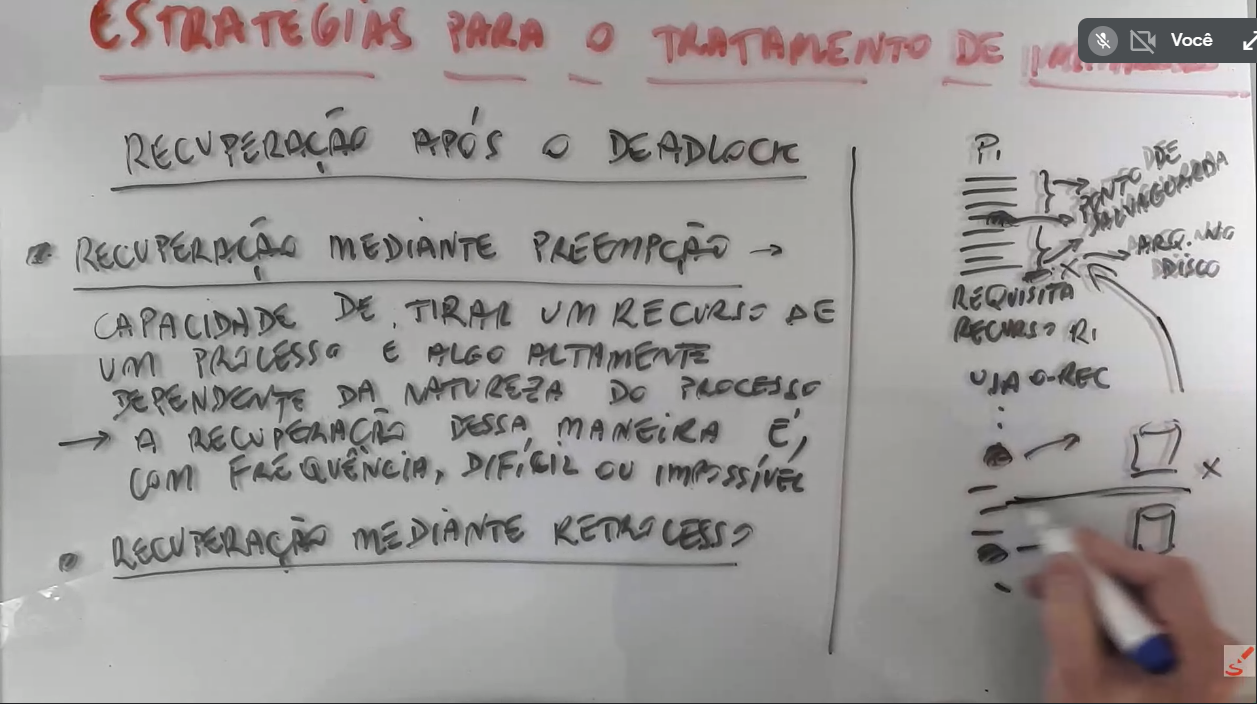 ESTRATÉGIAS PARA O TRATAMENTO DE
Você
RECUPERAÇÃO APÓS O DEADLOCK
• RECUPERAÇÃO MEDIANTE PREEMPÇÃO →
CAPACIDADE DE TIRAR UM RECURSO DE
UM PROCESSO É ALGO ALTAMENTE
DEPENDENTE DA NATUREZA DO PROCESSO
→ A RECUPERAÇÃO DESSA MANEIRA É,
COM FREQUÊNCIA, DIFÍCIL OU IMPOSSÍVEL
• RECUPERAÇÃO MEDIANTE RETROCESSO
P1
PONTO DE
SALVAGUARDA
ARQ. NO
DISCO
X
REQUISITA
RECURSO R1
USA O REC
X